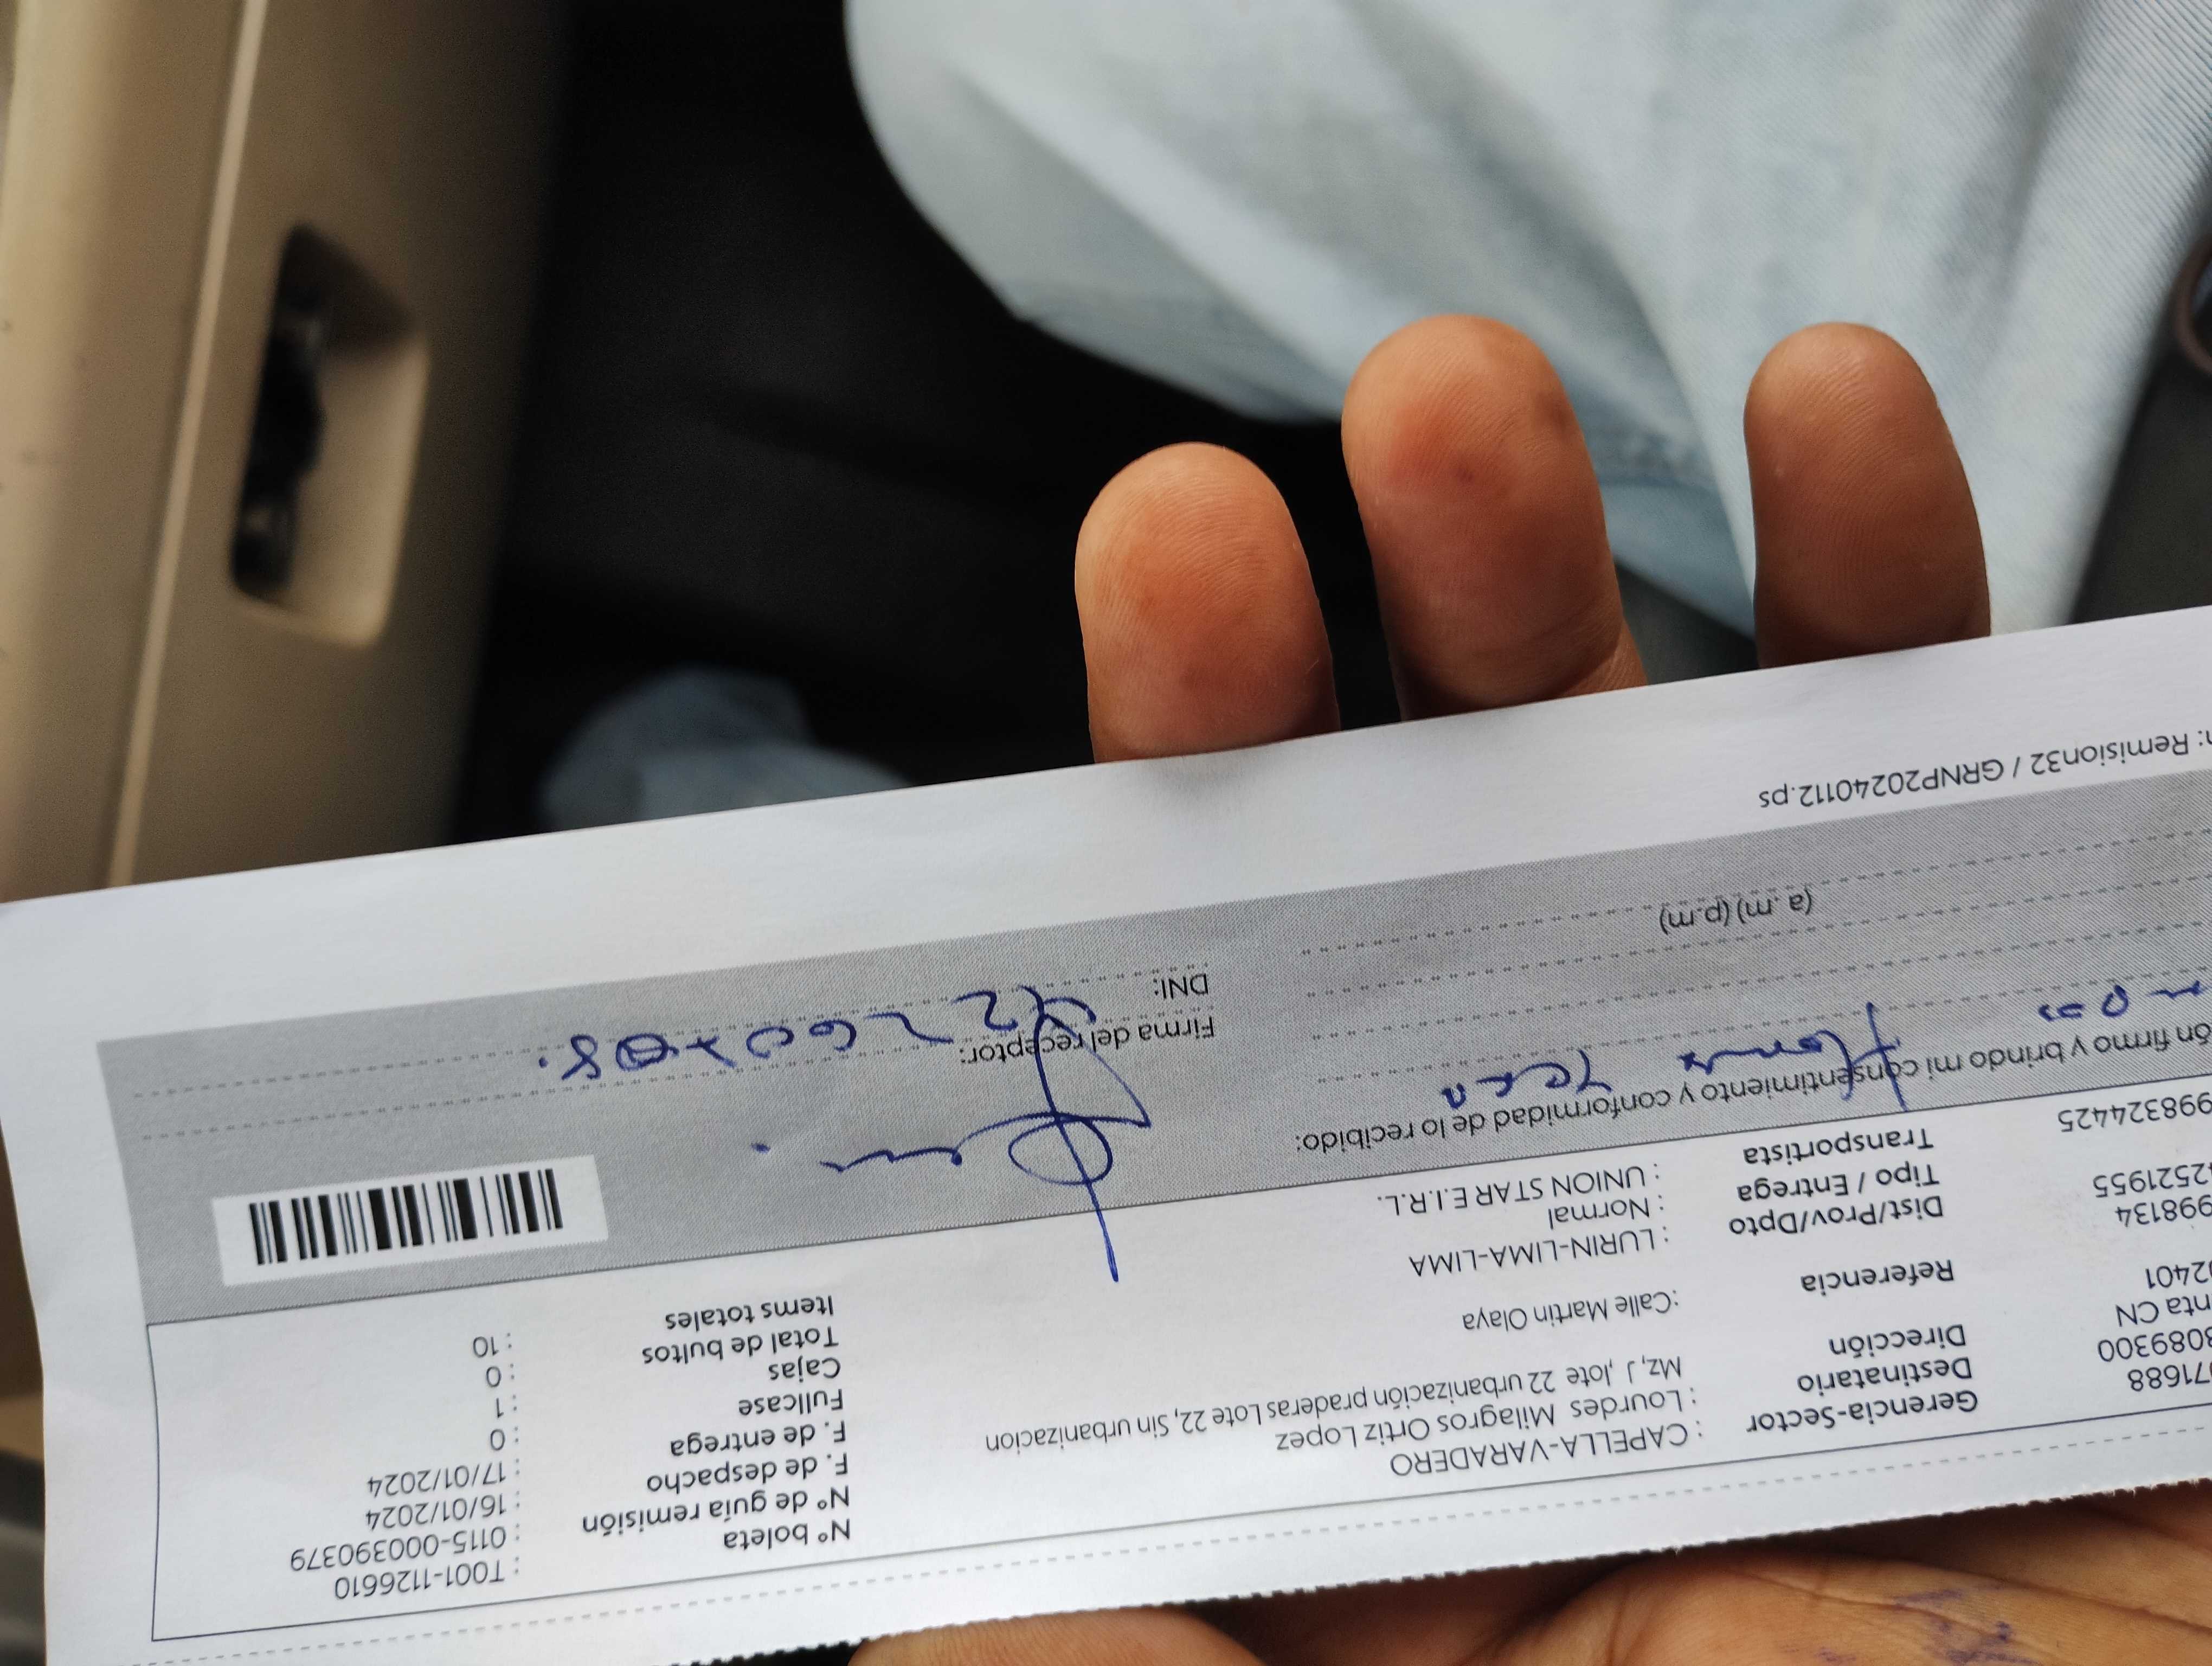 Nº boleta : T001-1126610
Nº de guía remisión : 0115-000390379
F. de despacho : 16/01/2024
F. de entrega : 17/01/2024
Fullcase : 0
Cajas : 1
Total de bultos : 0
Items totales : 10
71688
Gerencia-Sector : CAPELLA-VARADERO
089300
Destinatario : Lourdes Milagros Ortiz Lopez
nta CN
Dirección Mz, J ,lote 22 urbanización praderas Lote 22, Sin urbanizacion
02401
Referencia :Calle Martin Olaya
998134
Dist/Prov/Dpto : LURIN-LIMA-LIMA
2521955
Tipo / Entrega : Normal
998324425
Transportista : UNION STAR E.I.R.L.
ón firmo y brindo mi consentimiento y conformidad de lo recibido:
Firma del receptor:
DNI:
(a. m) (p.m)
n: Remision32 / GRNP20240112.ps